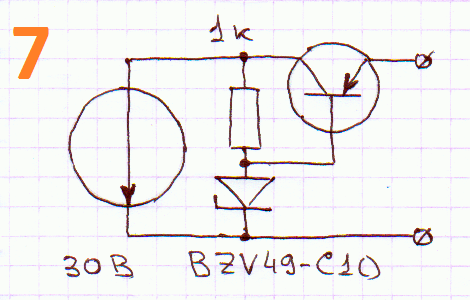 7
1k
30В
BZV49-C10